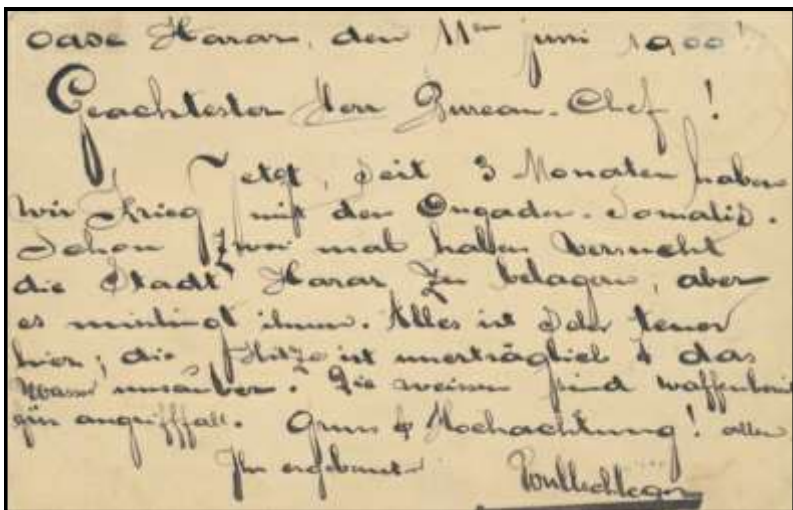 Oase Harar, den 11ten juni 1900!
Geachtester Herr Bureau-Chef!
Jetzt, seit 3 Monaten haben
wir Krieg mit den Ongaden-Somalis.
Schon zwei mal haben versucht
die Stadt Harar zu belagern, aber
es misslingt ihnen. Alles ist sehr teuer
hier; die Hitze ist unerträglich & das
Wasser unsauber. Die weissen sind waffenbereit
für angrifffall. Gruss & Hochachtung! allen
Ihr ergebenst